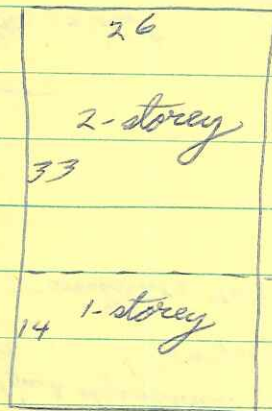 26
2-storey
33
1-storey
14